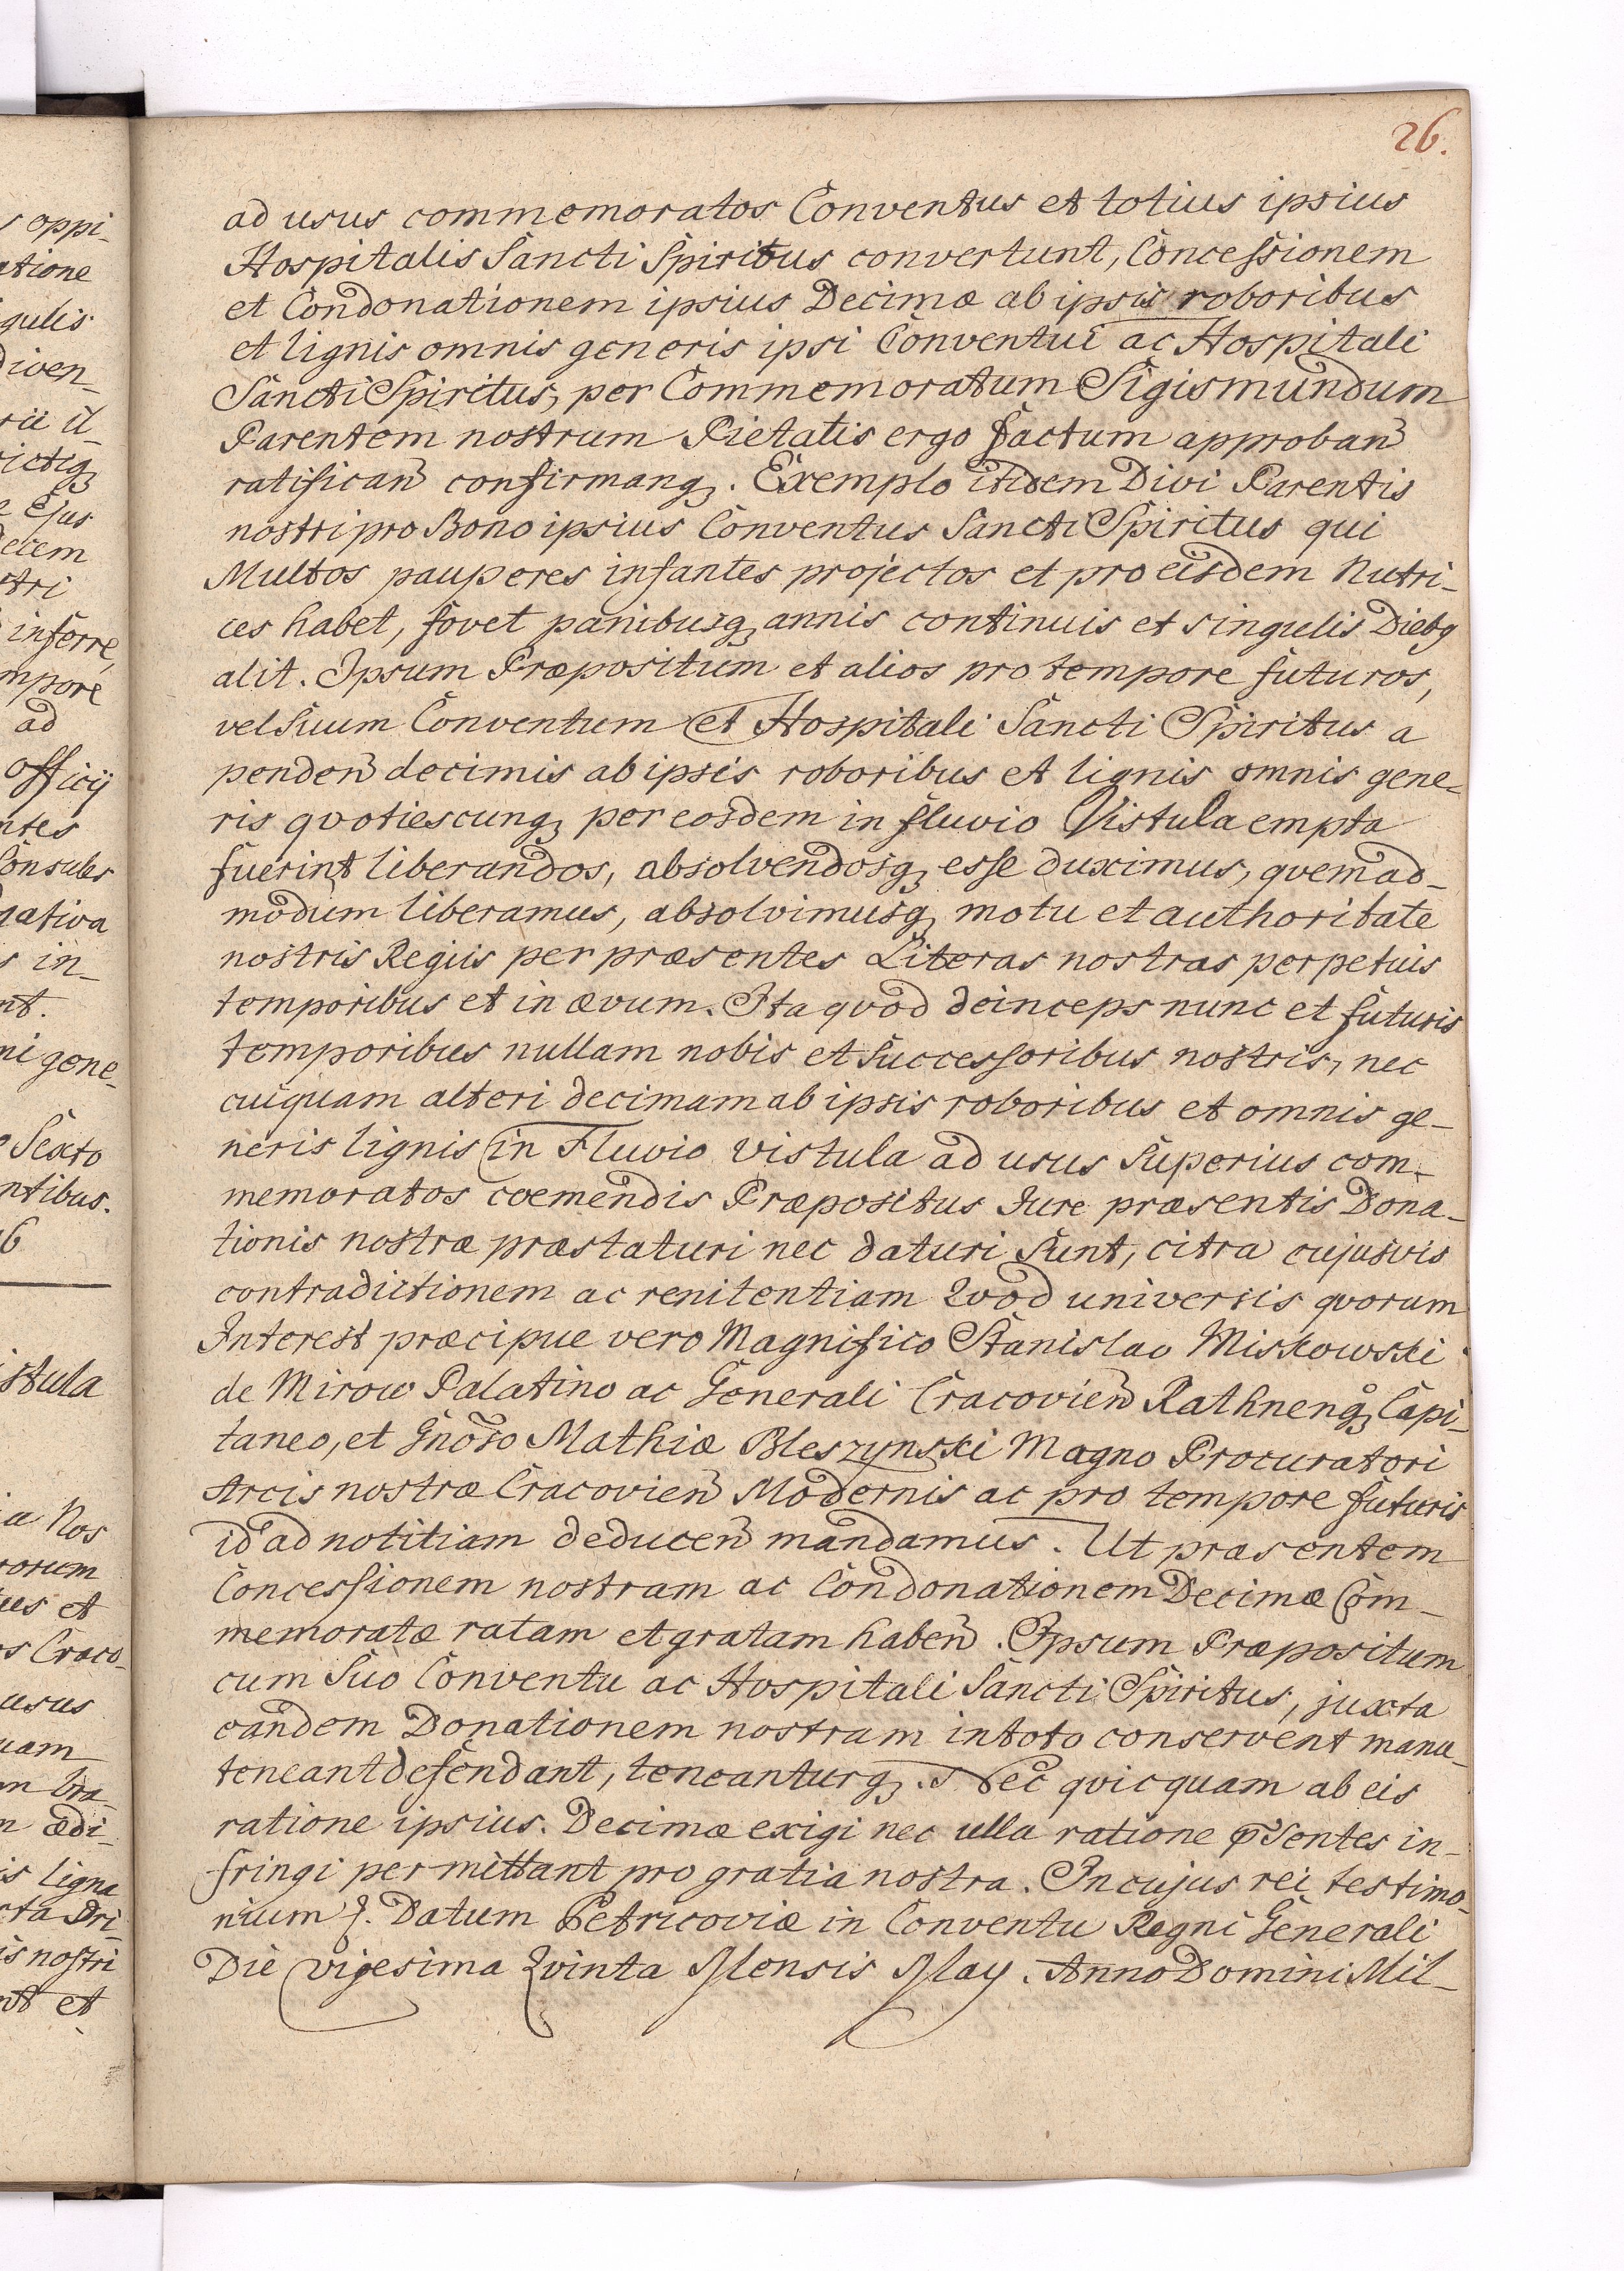 26.
ad usus commemoratos Conventus et totius ipsius
Hospitalis Sancti Spiritus convertunt, Concessionem
et Condonationem ipsius Decimæ ab ipsis roboribus
et lignis omnis generis ipsi Conventui ac Hospitali
Sancti Spiritus, per Commemoratum Sigismundum
Parentem nostrum Pietatis ergo factum approbañ
ratificañ confirmanq₃. Exemplo itidem Divi Parentis
nostri pro Bono ipsius Conventus Sancti Spiritus qui
Multos pauperes infantes projectos et pro eisdem Nutri-
ces habet, fovet panibusq₃ annis continuis et singulis Diebq
alit. Ipsum Præpositum et alios pro tempore futuros,
vel Suum Conventum et Hospitali Sancti Spiritus a
pendeñ decimis ab ipsis roboribus et lignis omnis gene-
ris qvotiescunq₃ per eosdem in fluvio Vistula empta
fuerint liberandos, absolvendosq₃ esse duximus, qvemad-
modum liberamus, absolvimusq₃ motu et authoritate
nostris Regiis per præsentes Literas nostras perpetuis
temporibus et in ævum. Ita qvod deinceps nunc et futuris
temporibus nullam nobis et Successoribus nostris, nec
cuiquam alteri decimam ab ipsis roboribus et omnis ge-
neris lignis in Fluvio Vistula ad usus Superius com-
memoratos coemendis Præpositus Jure præsentis Dona-
tionis nostræ præstaturi nec daturi Sunt, citra cujusvis
contradictionem ac renitentiam Qvod universis qvorum
Interest præcipue vero Magnifico Stanislao Miskowski
de Mirow Palatino ac Generali Cracovieñ Rathnenq₃ Capi-
taneo, et Gñoso Mathiæ Bleszynski Magno Procuratori
Arcis nostræ Cracovieñ Modernis ac pro tempore futuris
id ad notitiam deduceñ mandamus. Ut præsentem
Concessionem nostram ac Condonationem Decimæ Com-
memoratæ ratam et gratam habeñ. Ipsum Præpositum
cum Suo Conventu ac Hospitali Sancti Spiritus, juxta
eandem Donationem nostram in toto conservent manu-
teneant defendant, teneanturq₃. Nec qvicquam ab eis
ratione ipsius. Decimæ exigi nec ulla ratione p̃sentes in-
fringi permittant pro gratia nostra. In cujus rei testimo-
nium Datum Petricoviæ in Conventu Regni Generali
Die vigesima Qvinta Mensis May. Anno Domini Mil-